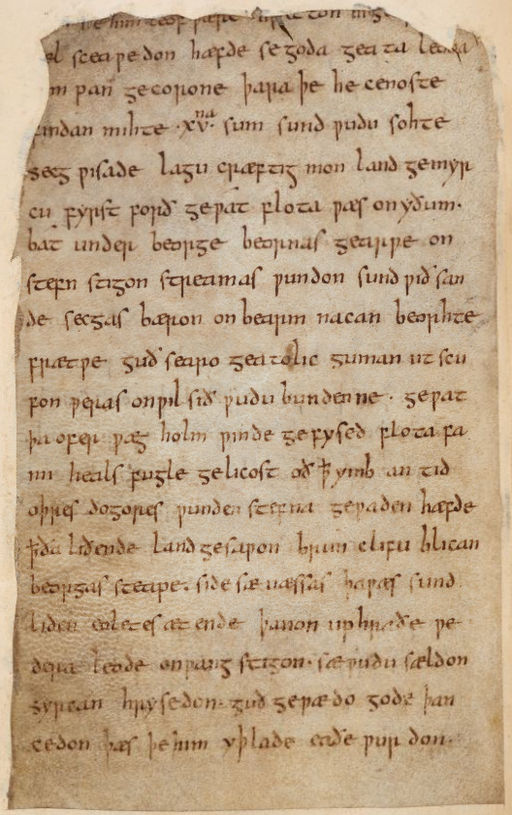 he him leof ƿære hƿetton hig
æl sceaƿedon hæfde se goda geata leoda
m pan gecorone þara þe he cenoste
findan mihte ·xv·na sum sund ƿudu sohte
secg ƿisade lagu cræftig mon land gemyr
cu fyrst forð geƿat flota ƿæs on yðum·
bat under beorge beornas gearƿe on
stefn stigon streamas ƿundon sund ƿið san
de secgas bæron on bearm nacan beorhte
frætƿe guð searo geatolic guman ut scu
fon ƿeras on ƿil sið ƿudu bundenne· geƿat
þa ofer ƿæg holm ƿinde gefysed flota fa
mi heals fugle gelicost oð ꝥ ymb an tid
oþres dogores ƿunden stefna geƿaden hæfde
ꝥ ða liðende land gesaƿon brim clifu blican
beorgas steape· side sæ næssas þa ƿæs sund
liden eoletes æt ende þanon up hraðe ƿe
dera leode on ƿang stigon· sæ ƿudu sældon
syrcan hrysedon· guð geƿædo gode þan
cedon þæs þe him yþlade eaðe ƿurdon·